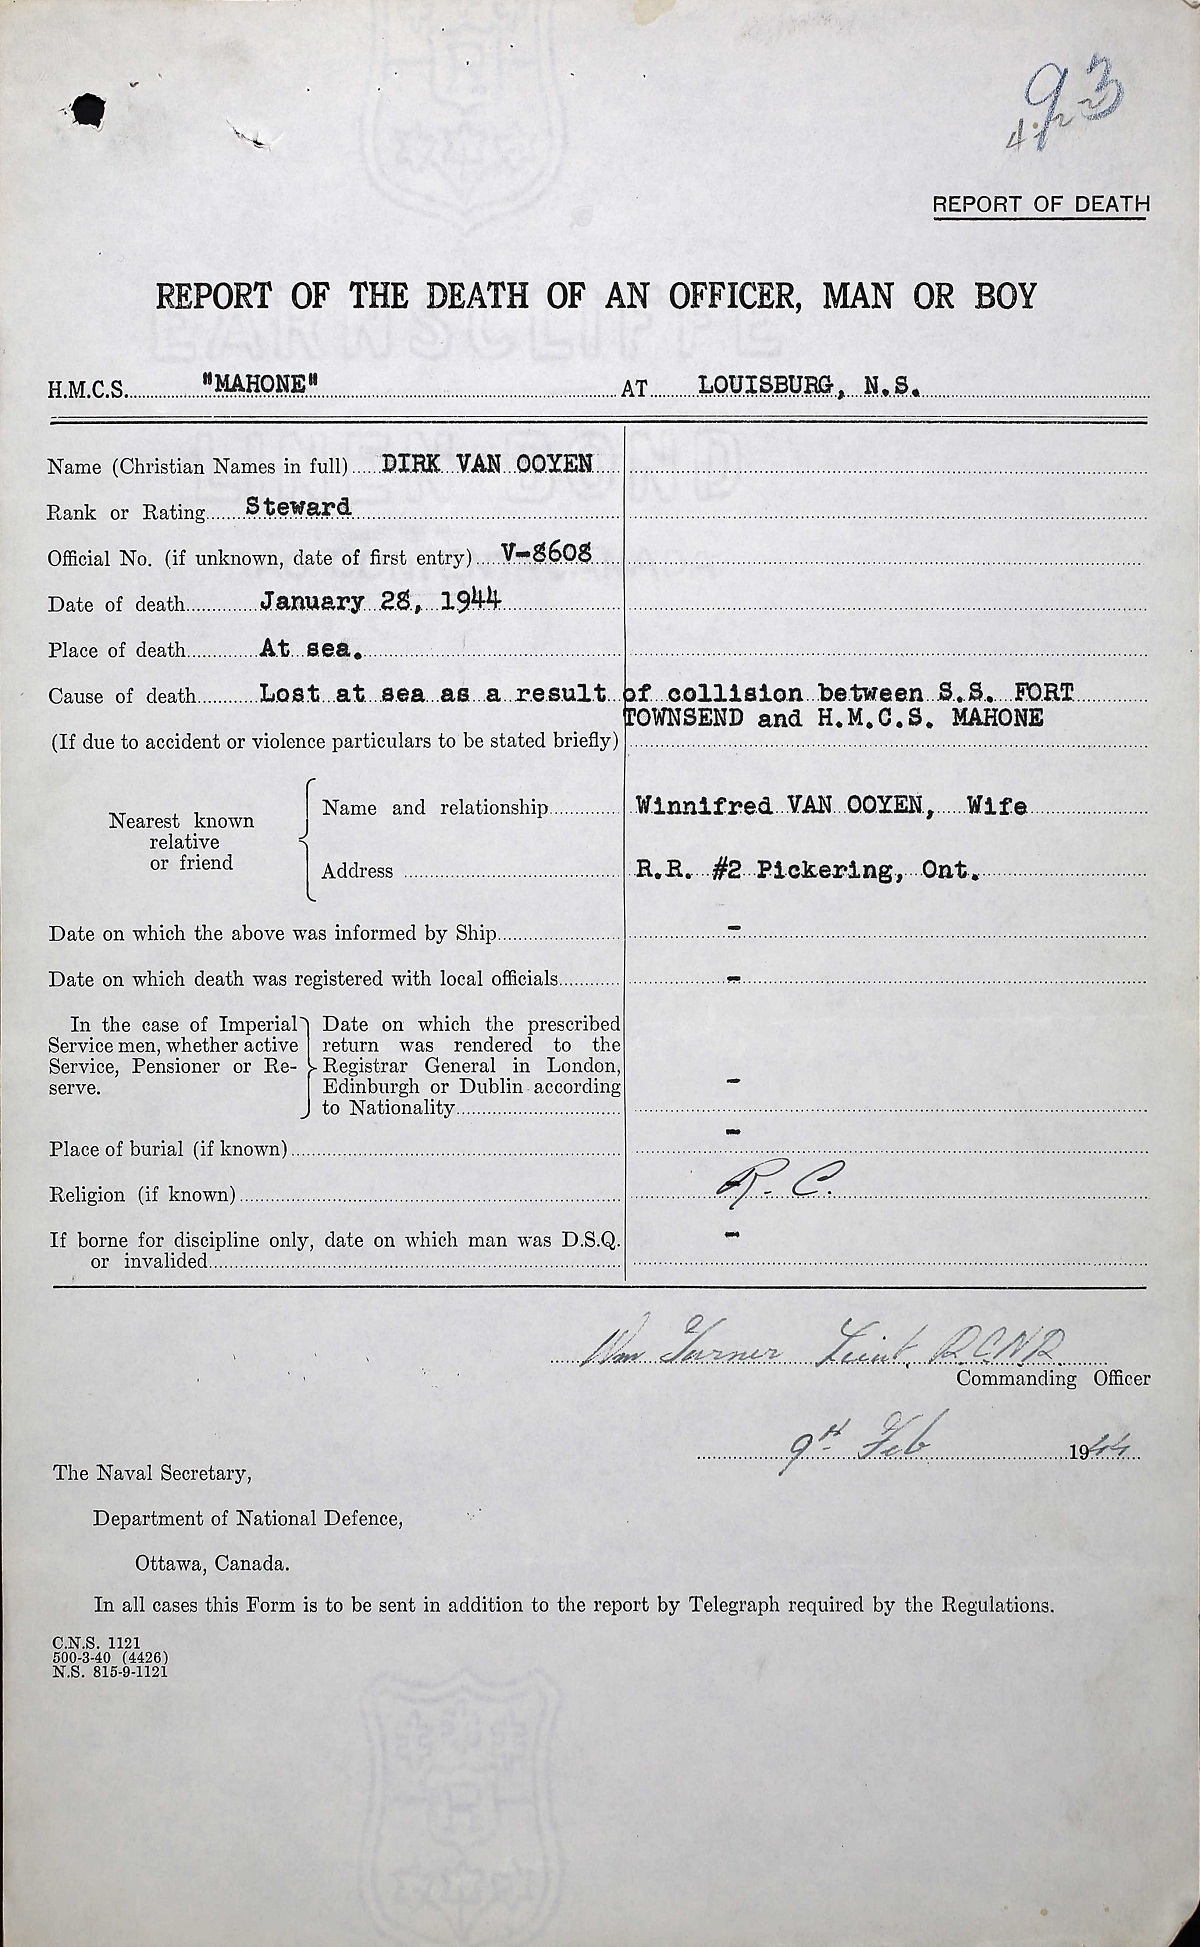 93
4-2-2
REPORT OF DEATH
REPORT OF THE DEATH OF AN OFFICER, MAN OR BOY
EARNSCLIFFE
H.M.C.S. "MAHONE" AT LOUISBURG, N.S.
LINEN BOND
Name (Christian Names in full) DIRK VAN OOYEN
Rank or Rating Steward
Official No. (if unknown, date of first entry) V-8608
Date of death January 28, 1944
Place of death At sea.
Cause of death Lost at sea as a result of collision between S.S. FORT
TOWNSEND and H.M.C.S. MAHONE
(If due to accident or violence particulars to be stated briefly)
Nearest known
relative
or friend
Name and relationship Winnifred VAN OOYEN, Wife
Address R.R. #2 Pickering, Ont.
Date on which the above was informed by Ship -
Date on which death was registered with local officials -
In the case of Imperial
Service men, whether active
Service, Pensioner or Re-
serve.
Date on which the prescribed
return was rendered to the
Registrar General in London,
Edinburgh or Dublin according
to Nationality -
Place of burial (if known) -
Religion (if known) R.C.
If borne for discipline only, date on which man was D.S.Q.
or invalided -
Wm Turner Lieut. R.C.N.R.
Commanding Officer
9th Feb 1944
The Naval Secretary,
Department of National Defence,
Ottawa, Canada.
In all cases this Form is to be sent in addition to the report by Telegraph required by the Regulations.
C.N.S. 1121
500-3-40 (4426)
N.S. 815-9-1121